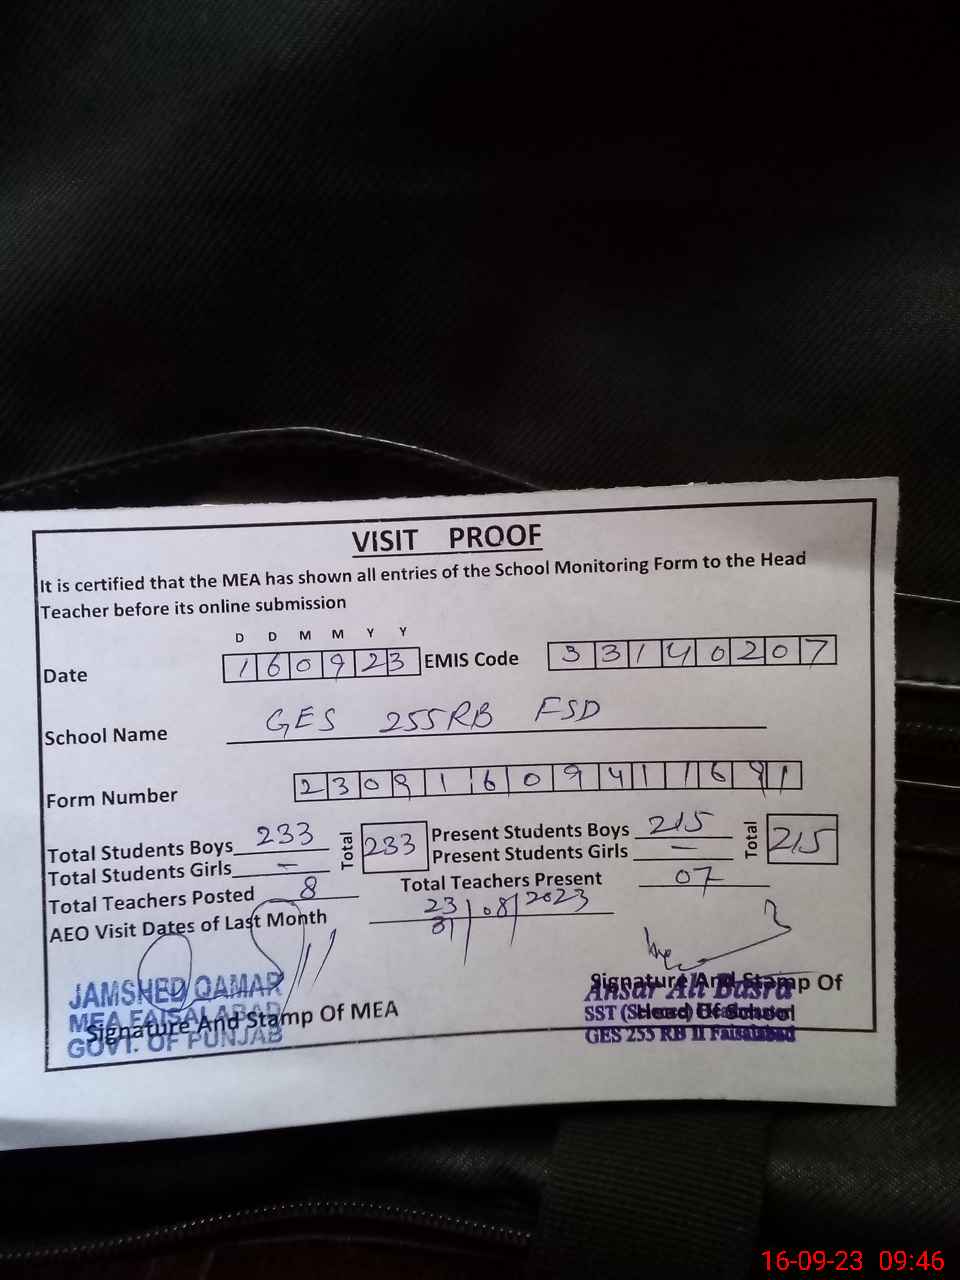 VISIT PROOF
It is certified that the MEA has shown all entries of the School Monitoring Form to the Head
Teacher before its online submission
D D M M Y Y
Date 160923 EMIS Code 33140207
School Name GES 255RB FSD
Form Number
Total Students Boys 233 Total 233 Present Students Boys 215 Total 215
Total Students Girls - Present Students Girls -
Total Teachers Posted 8 Total Teachers Present 07
AEO Visit Dates of Last Month 23/08/2023
JAMSHED QAMAR
MEA FAISALABAD
GOVT. OF PUNJAB
Signature And Stamp Of MEA
Signature And Stamp Of
Head Of School
Ansar Ali Busra
SST
GES 255 RB II Faisalabad
16-09-23 09:46